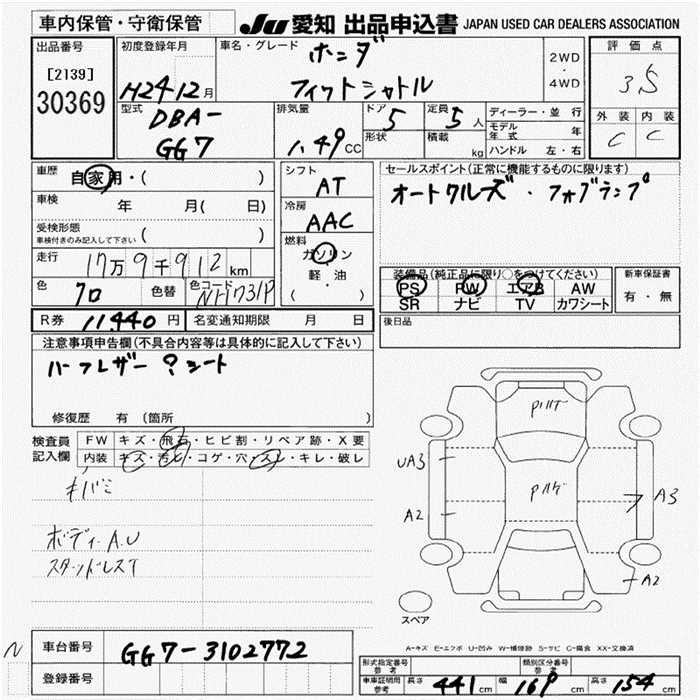 車内保管・守衛保管
JU 愛知 出品申込書 JAPAN USED CAR DEALERS ASSOCIATION
出品番号
[2139]
30369
初度登録年月
H24-12月
車名・グレード
ホンダ
フィットシャトル
2WD
・
4WD
評価点
3.5
外装 内装
C C
型式
DBA-
GG7
排気量
1.49CC
ドア 5
形状
定員 5人
積載 kg
ディーラー・並行
モデル年式 年
ハンドル 左・右
車歴
自家用・( )
車検 年 月( 日)
受検形態
車検付きのみ記入して下さい ( )
走行 17万9千912km
色 クロ 色替 色コード NH731P
シフト
AT
冷房
AAC
燃料
ガソリン
軽・油
( )
セールスポイント(正常に機能するものに限ります)
オートクルーズ・フォグランプ
装備品(純正品に限り○をつけてください)
PS PW エアB AW
SR ナビ TV カワシート
新車保証書
有・無
R券 11,440円 名変通知期限 月 日
後日品
注意事項申告欄(不具合内容等は具体的に記入して下さい)
ハーフレザー?シート
修復歴 有 (箇所 )
検査員
記入欄
FW キズ・飛石・ヒビ割・リペア跡・X要
内装 キズ・汚れ・コゲ・穴・スレ・キレ・破レ
キバミ
ボディA.U
スタッドレスT
UA3
A2
A3
A2
スペア
A-キズ E-エクボ U-凹み W-補修跡 S-サビ C-腐食 XX-交換済
N
車台番号 GG7-3102772
登録番号
形式指定番号
参考
類別区分番号
参考
車車証明用
参考
長さ 441cm 幅 169cm 高さ 154cm